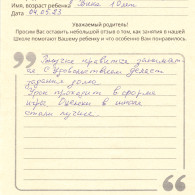 Имя, возраст ребенка Дина 10 лет
04.05.23
Уважаемый родитель!
Просим Вас оставить небольшой отзыв о том, как занятия в нашей
Школе помогают Вашему ребенку и что особенно Вам понравилось
Внучке нравится заниматься
С удовольствием делает
задания дома.
Урок проходит в форме
игры. Оценки в школе
стали лучше.